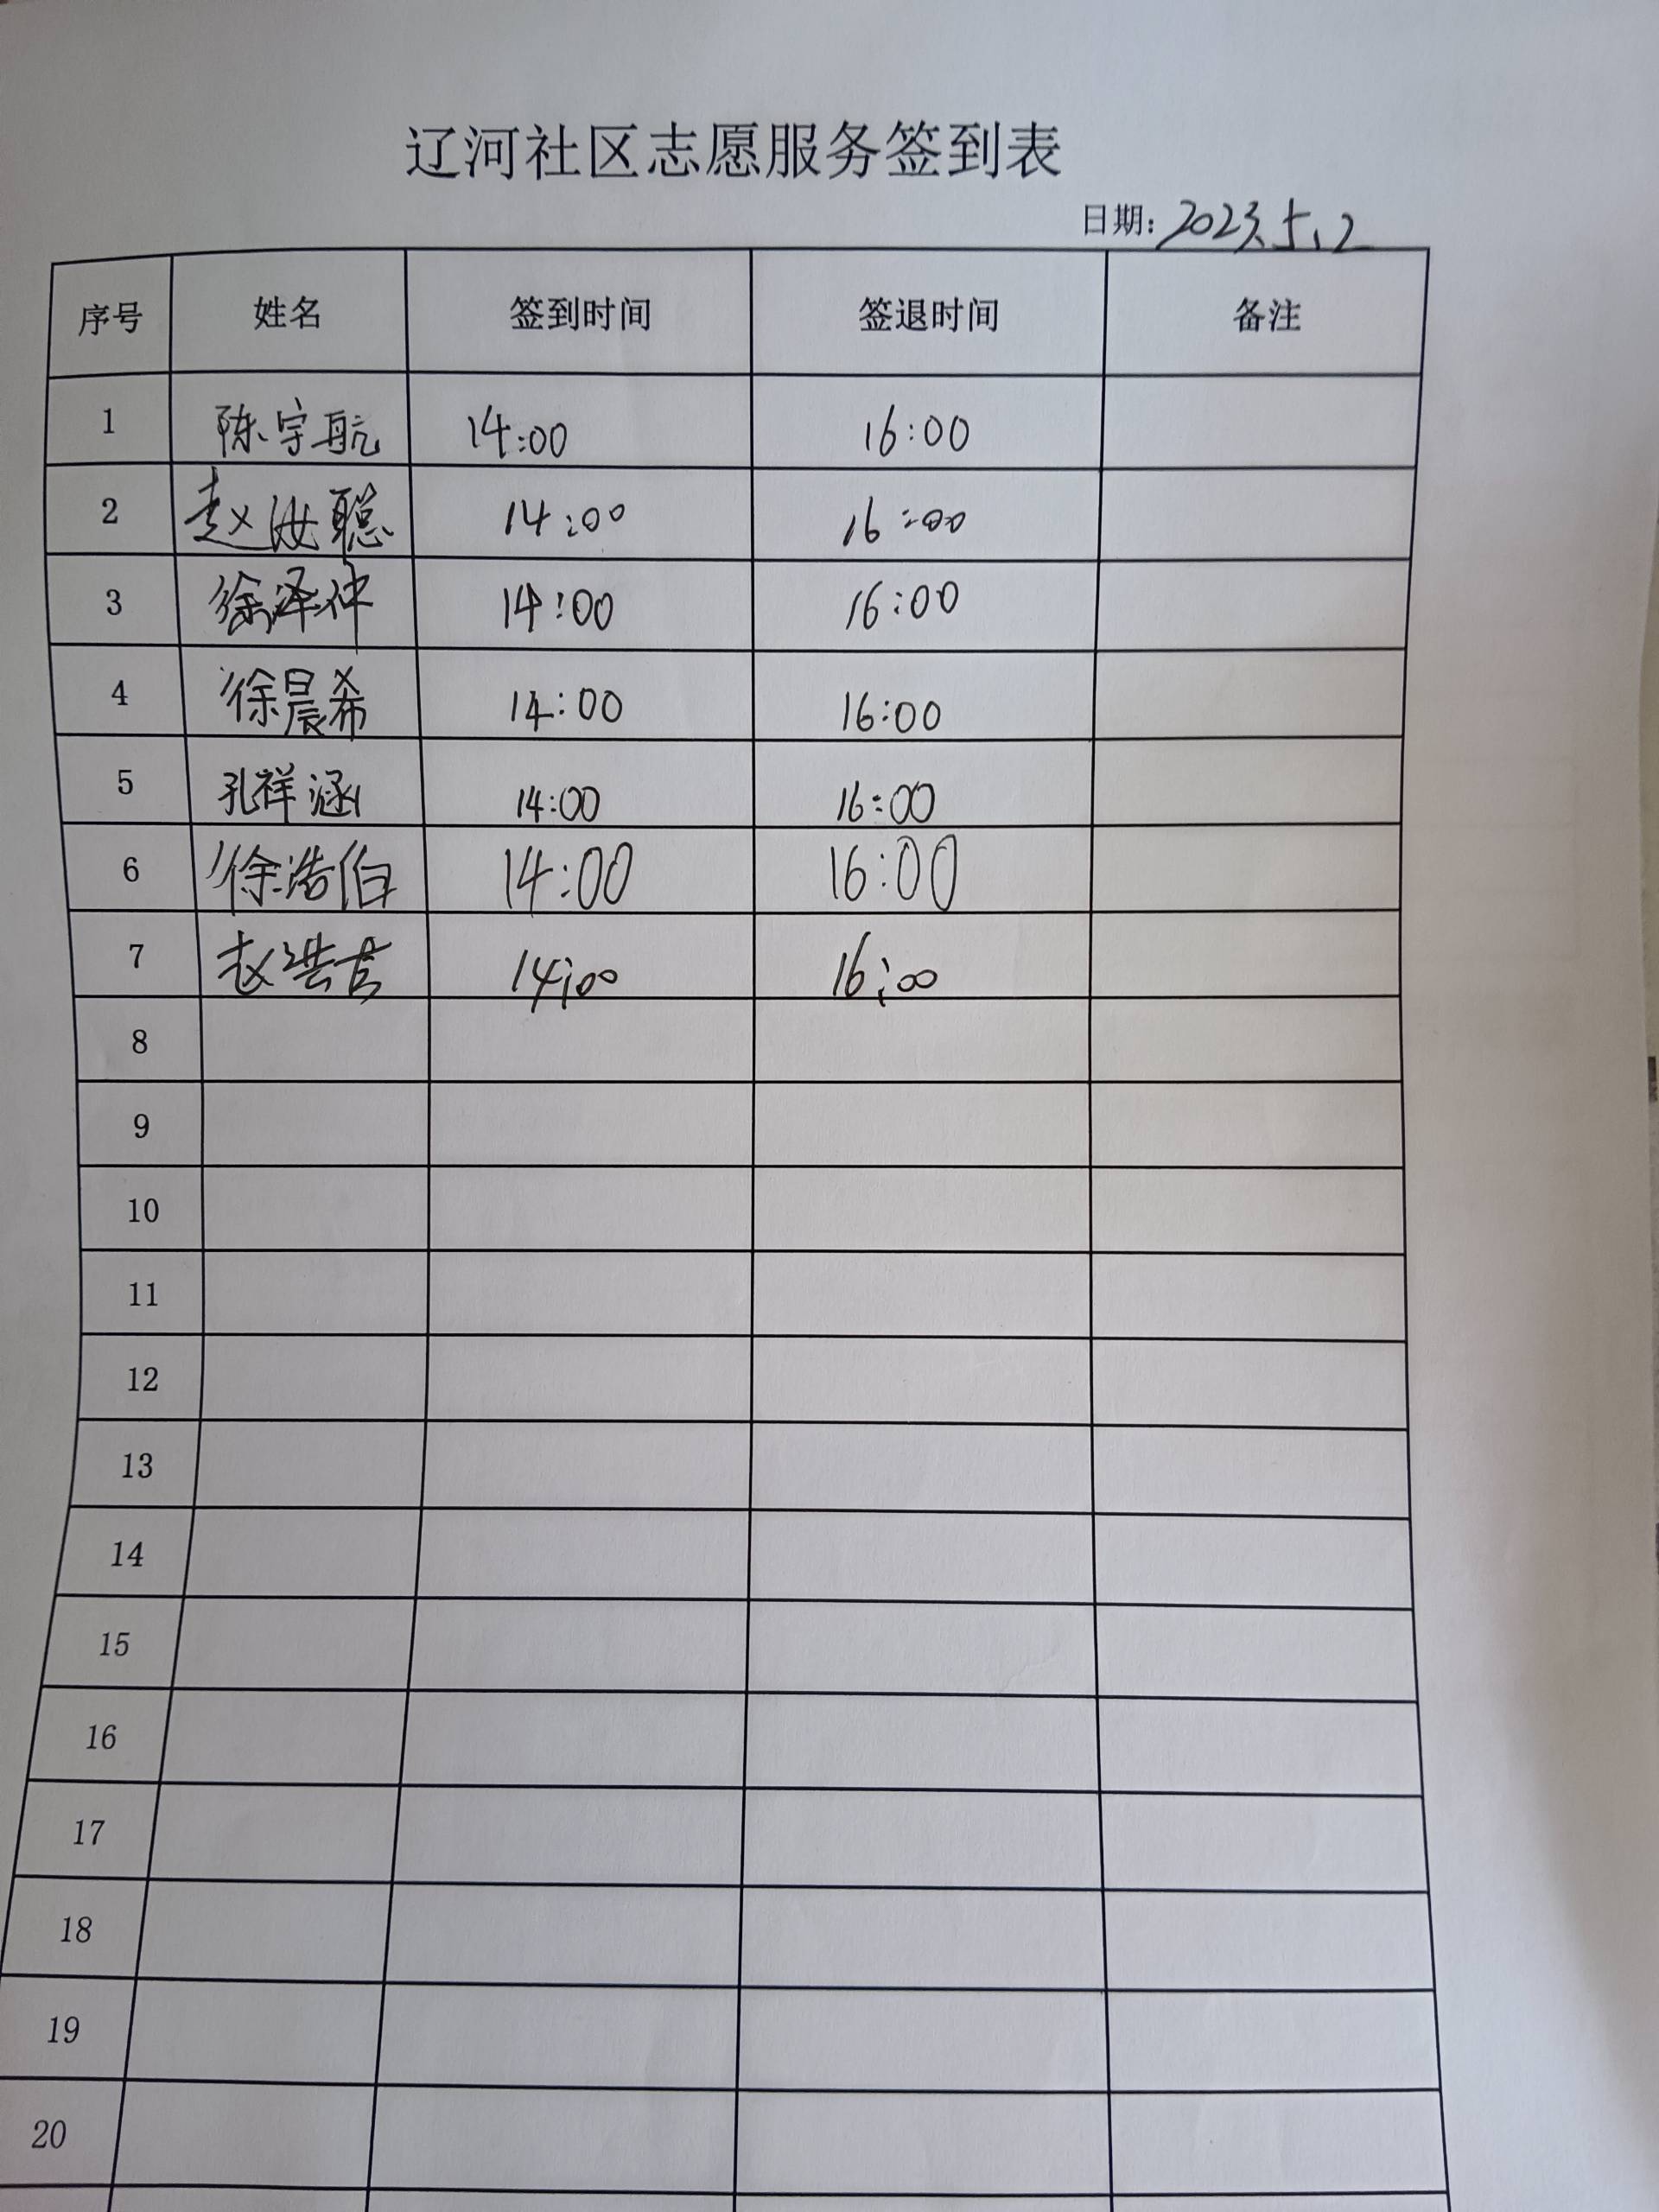 辽河社区志愿服务签到表
日期: 2023.5.2
序号 姓名 签到时间 签退时间 备注
1 陈宇航 14:00 16:00
2 赵汝聪 14:00 16:00
3 徐泽仲 14:00 16:00
4 徐晨希 14:00 16:00
5 孔祥涵 14:00 16:00
6 徐浩伯 14:00 16:00
7 赵洪 14:00 16:00
8
9
10
11
12
13
14
15
16
17
18
19
20